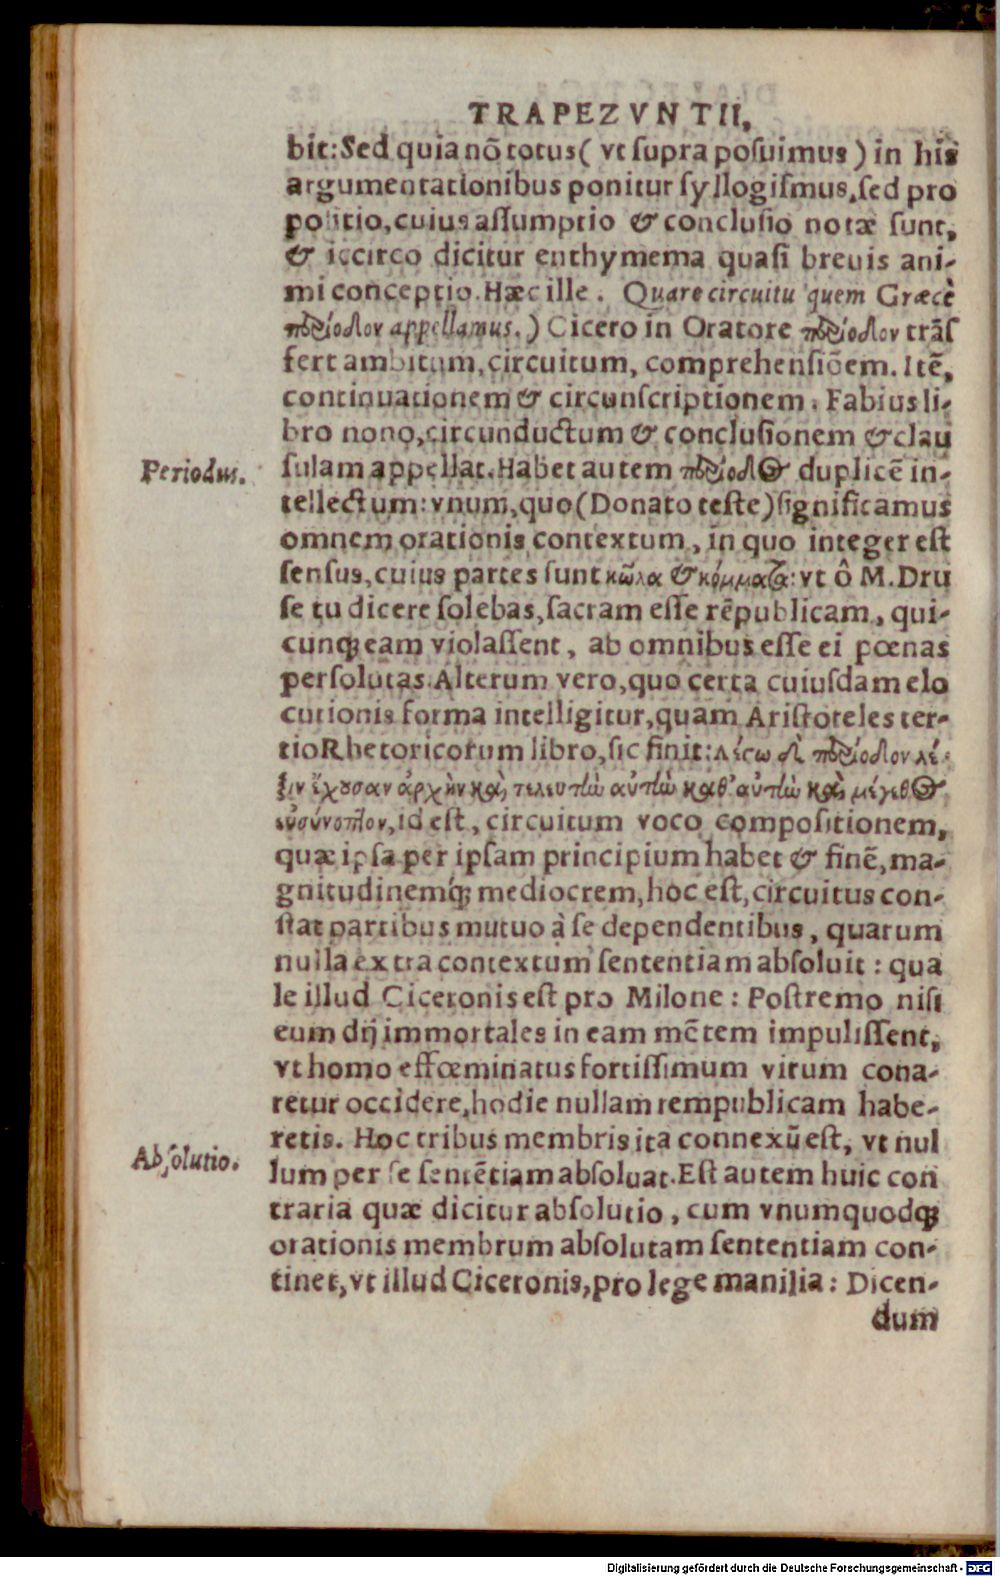 TRAPEZVNTII,
bit: Sed quia nõ totus (vt ſupra poſuimus) in his
argumentationibus ponitur ſyllogiſmus, ſed pro
poſitio, cuius aſſumptio & concluſio notæ ſunt,
& iccirco dicitur enthymema quaſi breuis ani-
mi conceptio. Hæc ille. Quare circuitu quem Græcè
περίοδον appellamus.) Cicero in Oratore περίοδον trãſ
fert ambitum, circuitum, comprehenſiõem. Itẽ,
continuationem & circunſcriptionem. Fabius li-
bro nono, circunductum & concluſionem & clau
Periodus.
ſulam appellat. Habet autem περίοδος duplicẽ in-
tellectum: vnum, quo (Donato teſte) ſignificamus
omnem orationis contextum, in quo integer eſt
ſenſus, cuius partes ſunt κῶλα & κόμματα: vt ô M. Dru
ſe tu dicere ſolebas, ſacram eſſe rẽpublicam, qui-
cunq; eam violaſſent, ab omnibus eſſe ei pœnas
perſolutas. Alterum vero, quo certa cuiuſdam elo
cutionis forma intelligitur, quam Ariſtoteles ter-
tio Rhetoricorum libro, ſic finit: λέγω δὲ περίοδον λέ-
ξιν ἔχουσαν ἀρχὴν καὶ τελευτὴν αὐτὴν καθ' αὑτὴν καὶ μέγεθος
εὐσύνοπτον, id eſt, circuitum voco compoſitionem,
quæ ipſa per ipſam principium habet & finẽ, ma-
gnitudinemq́; mediocrem, hoc eſt, circuitus con-
ſtat partibus mutuo à ſe dependentibus, quarum
nulla extra contextum ſententiam abſoluit: qua
le illud Ciceronis eſt pro Milone: Poſtremo niſi
eum dij immortales in eam mẽtem impuliſſent,
vt homo effœminatus fortiſſimum virum cona-
retur occidere, hodie nullam rempublicam habe-
retis. Hoc tribus membris ita connexũ eſt, vt nul
Abſolutio.
lum per ſe ſentẽtiam abſoluat. Eſt autem huic con
traria quæ dicitur abſolutio, cum vnumquodq;
orationis membrum abſolutam ſententiam con-
tinet, vt illud Ciceronis, pro lege manilia: Dicen-
dum
Digitalisierung gefördert durch die Deutsche Forschungsgemeinschaft - DFG